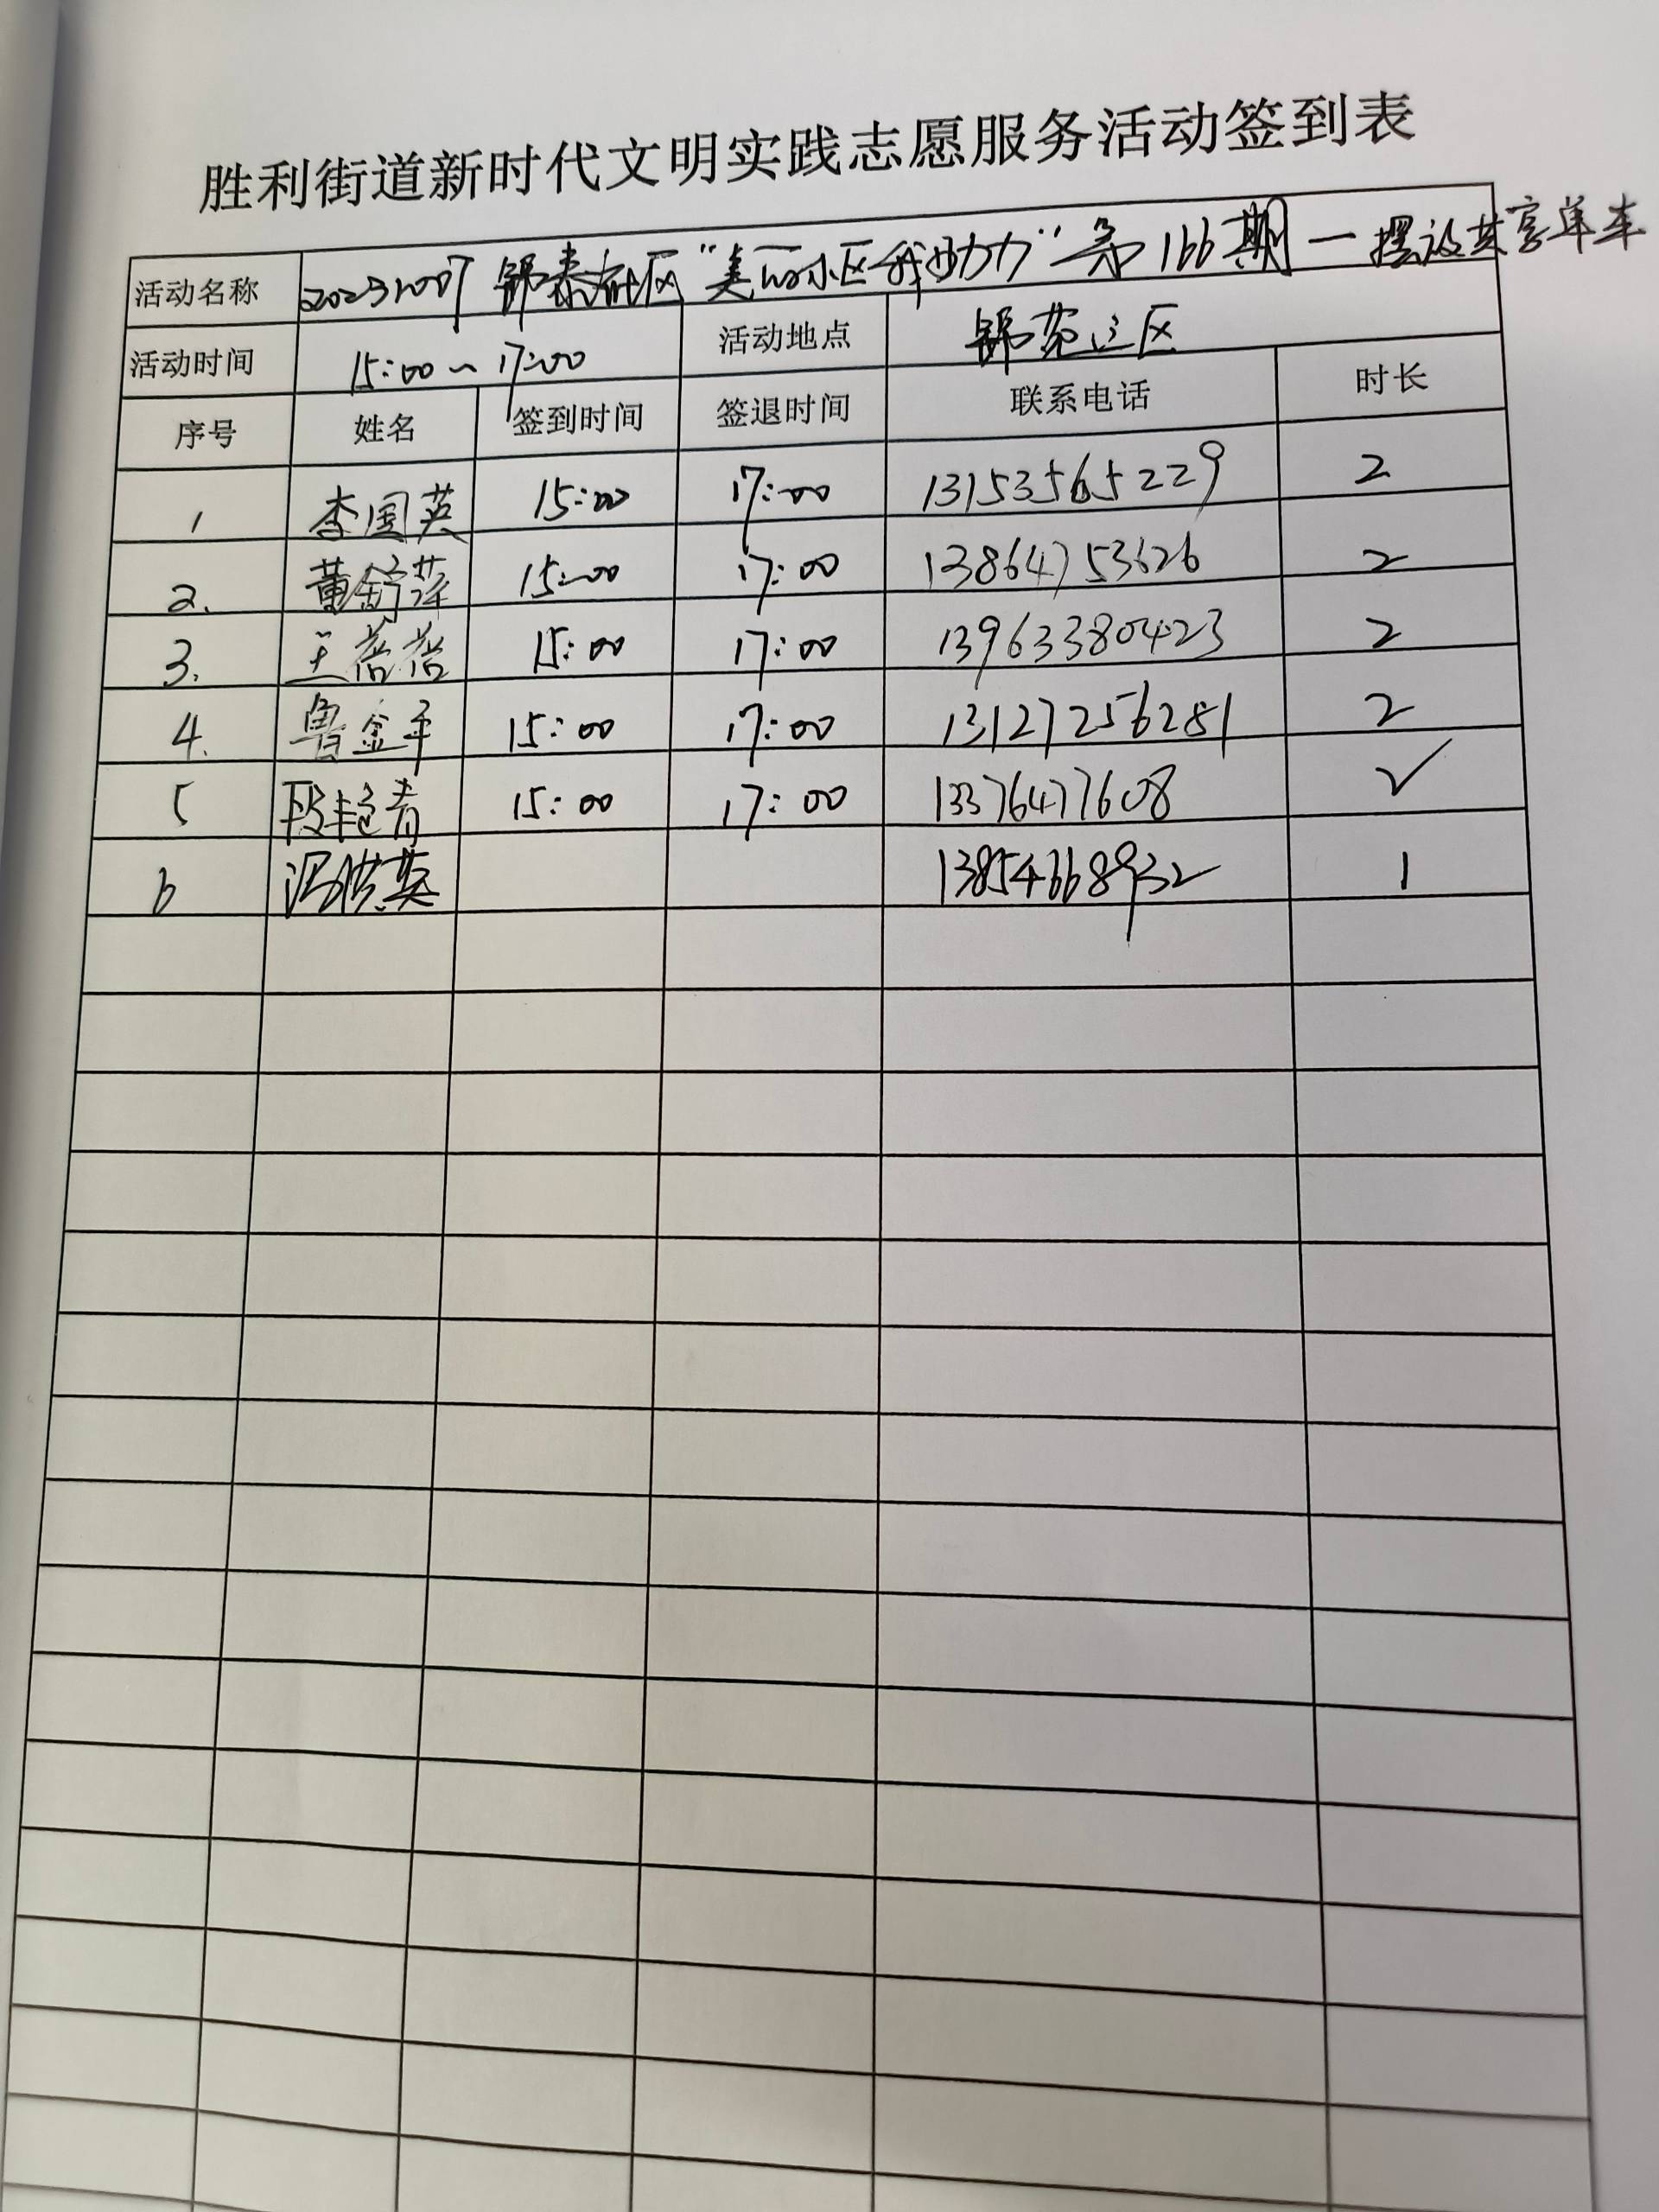 胜利街道新时代文明实践志愿服务活动签到表
活动名称 20231007 锦泰社区“美丽小区我助力”第166期一摆放共享单车
活动时间 15:00~17:00 活动地点 锦苑三区
序号 姓名 签到时间 签退时间 联系电话 时长
1 李国英 15:00 17:00 13153565229 2
2. 董舒萍 15:00 17:00 13864753626 2
3. 王蓓蓓 15:00 17:00 13963380423 2
4. 鲁金平 15:00 17:00 13127256281 2
5 段 青 15:00 17:00 13376477608 ✓
6 冯洪英 13854668932 1